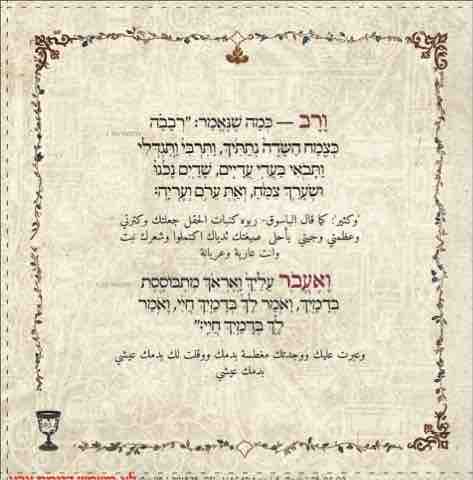 וָרָב — כְּמָה שֶׁנֶּאֱמַר: "רְבָבָה
כְּצֶמַח הַשָּׂדֶה נְתַתִּיךְ, וַתִּרְבִּי וַתִּגְדְּלִי
וַתָּבֹאִי בַּעֲדִי עֲדָיִים, שָׁדַיִם נָכֹנוּ
וּשְׂעָרֵךְ צִמֵּחַ, וְאַתְּ עֵרֹם וְעֶרְיָה:
وكثير: كما قال الباسوق- ربوه كنبات الحقل جعلتك وكثرتي
وعظمتي وجيتي بأحل صيغتك ثدياك اكتملوا وشعرك نبت
وانت عارية وعريانة
וָאֶעֱבֹר עָלַיִךְ וָאֶרְאֵךְ מִתְבּוֹסֶסֶת
בְּדָמָיִךְ, וָאֹמַר לָךְ בְּדָמַיִךְ חֲיִי, וָאֹמַר
לָךְ בְּדָמַיִךְ חֲיִי:"
وعبرت عليك ووجدتك مغطسة بدمك ووقلت لك بدمك عيشي
بدمك عيشي